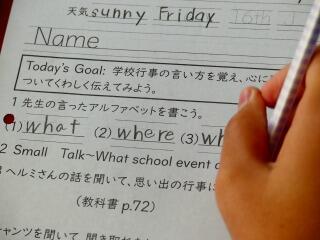 天気 sunny Friday 10th
Name
Today's Goal: 学校行事の言い方を覚え、心に
ついてくわしく伝えてみよう。
1 先生の言ったアルファベットを書こう。
(1) what (2) where (3) wh
2 Small Talk~What school event
ヘルミさんの話を聞いて、思い出の行事に
(教科書 p.72)